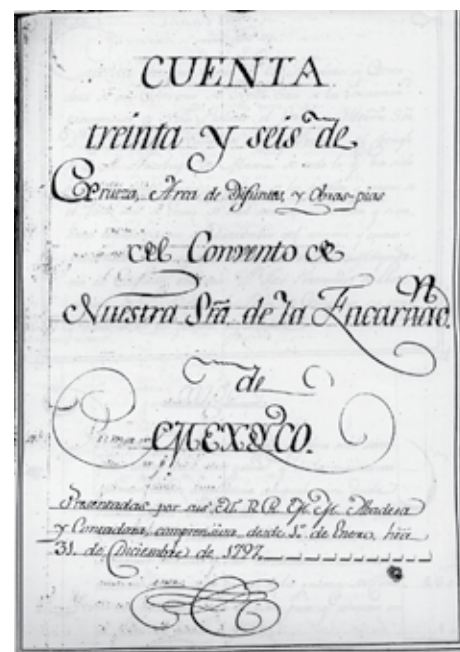 CUENTA
treinta y seis de
Grueza, Arca de Difuntas, y Obras-pias
del Convento de
Nuestra Sra. de la Encarnacõn.
de
MEXYCO.
Presentadas por sus R.R. M.M. Abadesa
y Contadora, comprensiva desde 1º. de Enero, hta
31. de Diciembre de 1797.